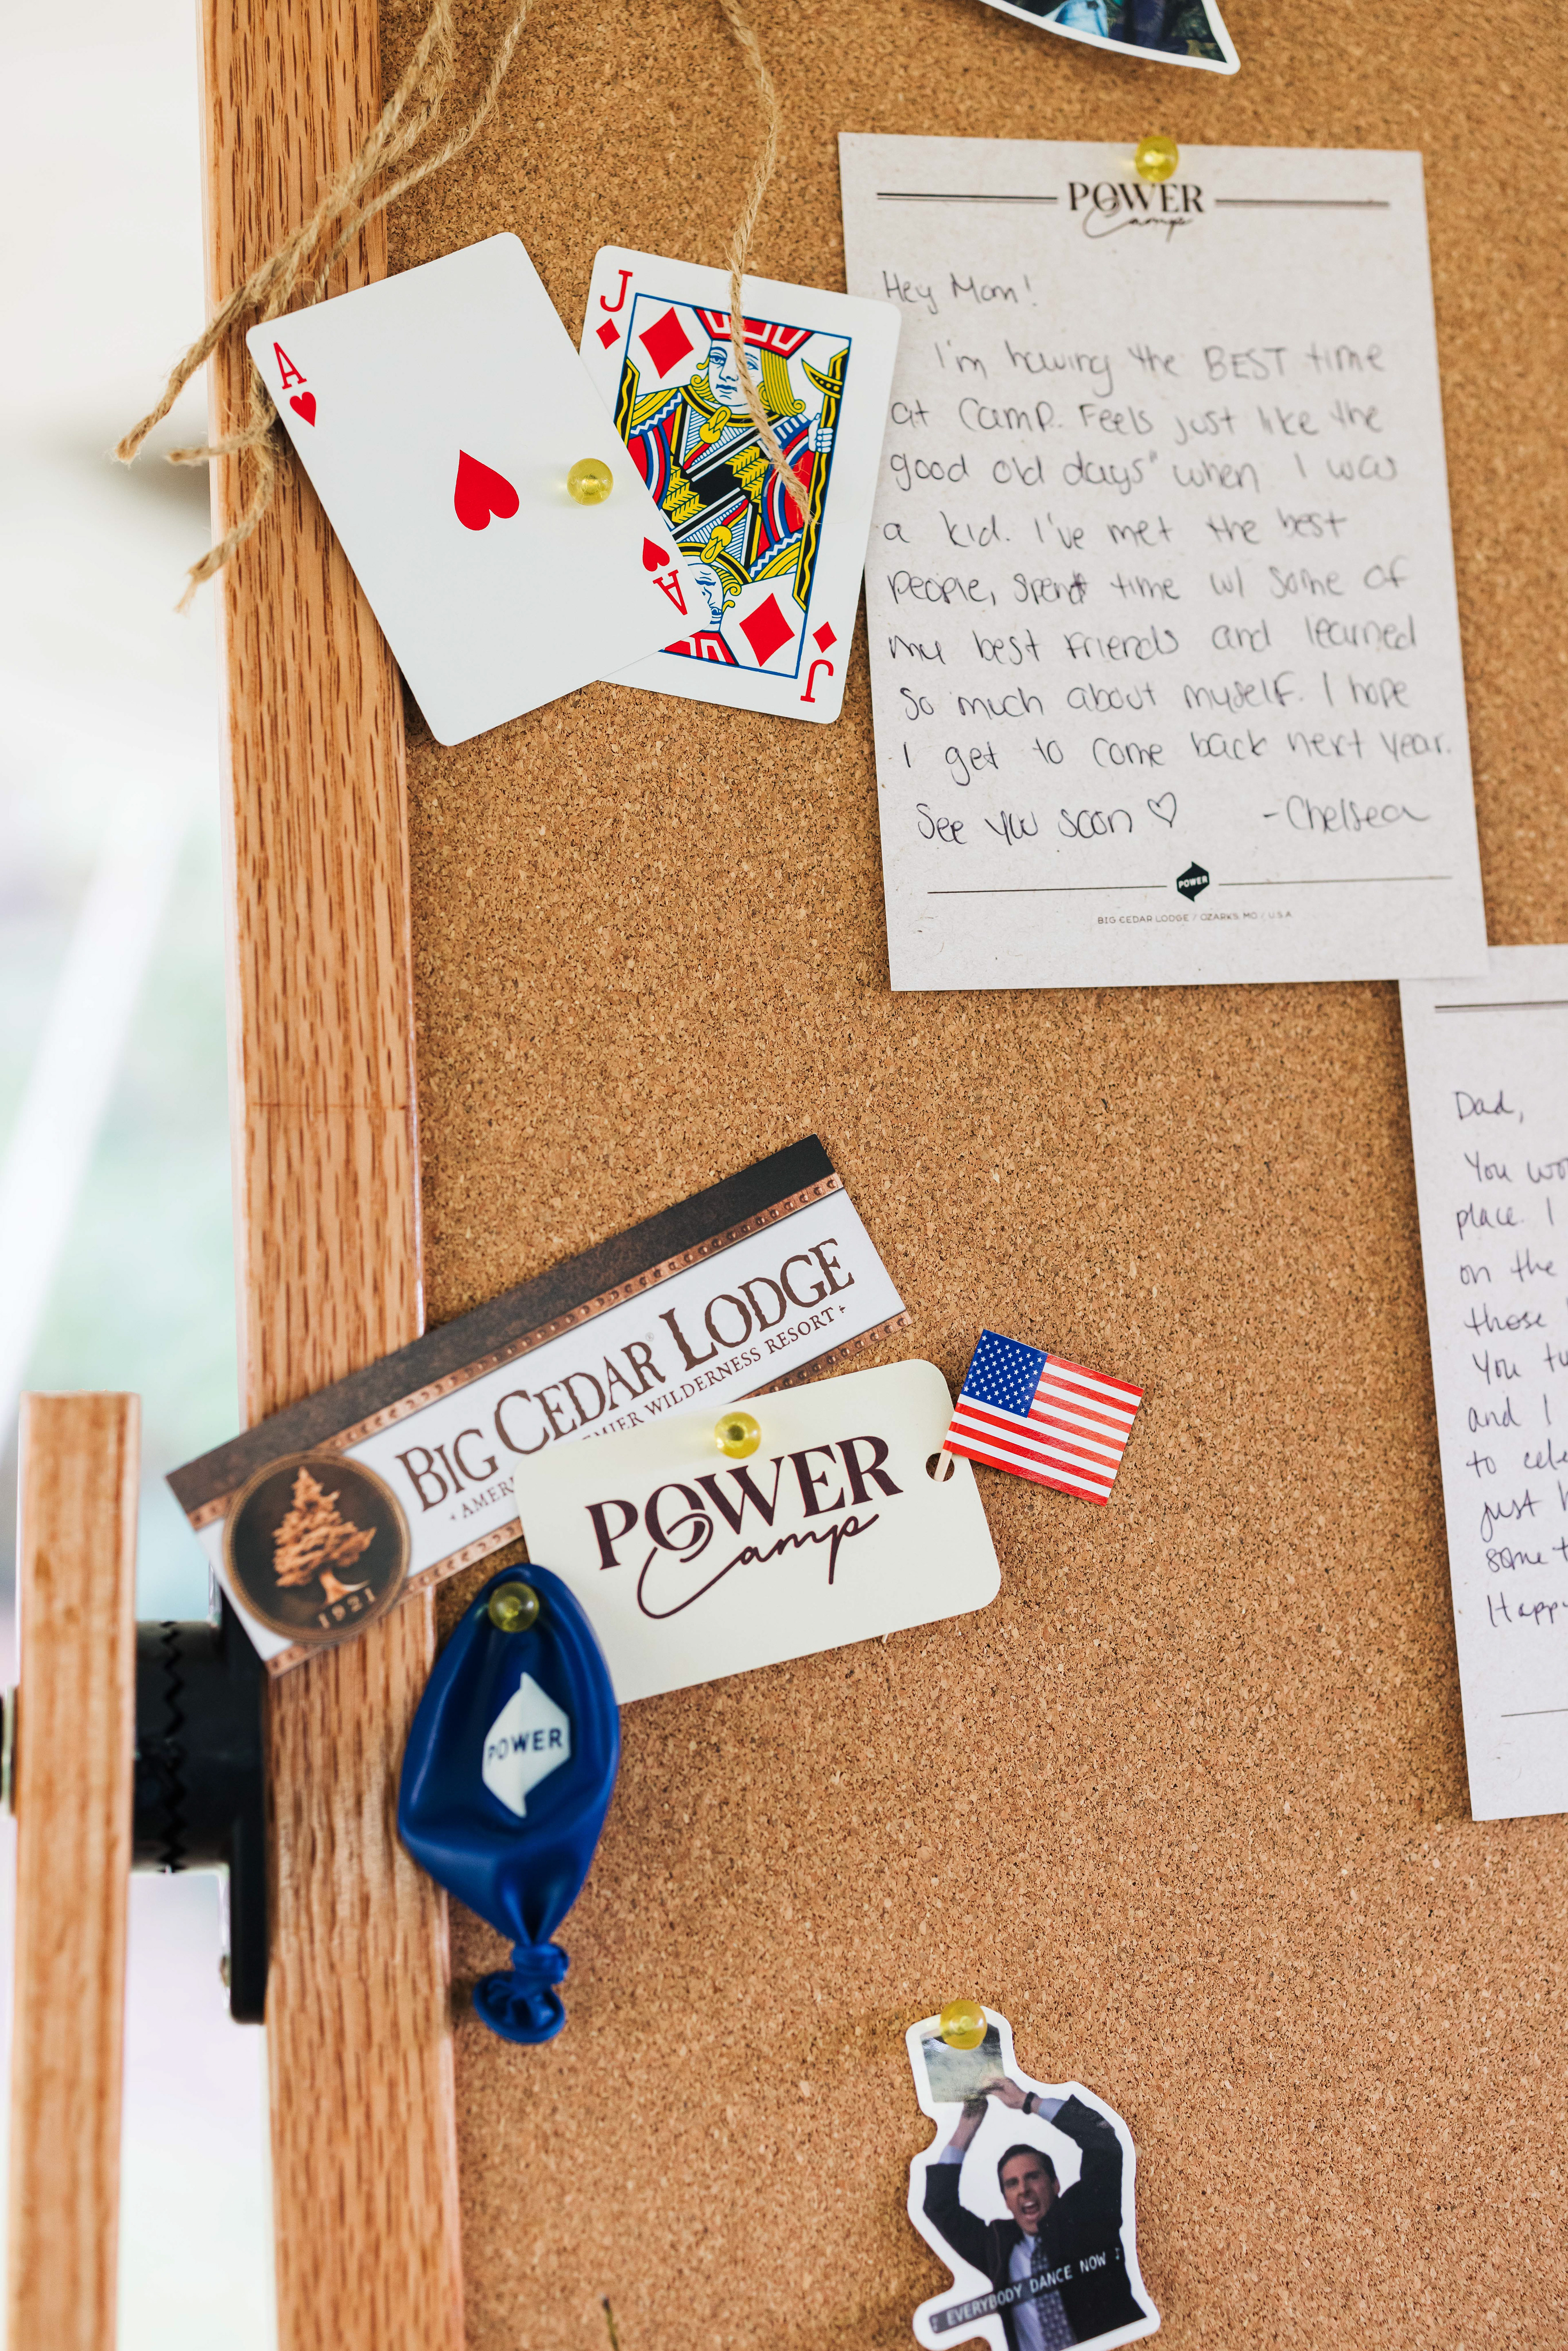 A
A
J
J
POWER
Camp
Hey Mom!
I'm having the BEST time
at Camp. Feels just like the
good old days" when I was
a kid. I've met the best
people, spent time w/ some of
my best friends and learned
so much about myself. I hope
I get to come back next year.
See you soon ♡ -Chelsea
POWER
BIG CEDAR LODGE / OZARKS, MO / U.S.A
Dad,
You wo
place. I
on the
those
You tu
and I
to cele
just b
some t
Happy
BIG CEDAR® LODGE
AMER MIER WILDERNESS RESORT
1921
POWER
Camp
POWER
♪ EVERYBODY DANCE NOW ♪